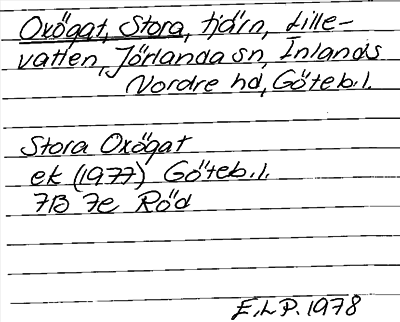 Oxögat, Stora, tjärn, Lille-
vatten, Jörlanda sn, Inlands
Nordre hd, Göteb.l.
Stora Oxögat
ek (1977) Göteb.l.
7B 7e Röd
E.L.P. 1978